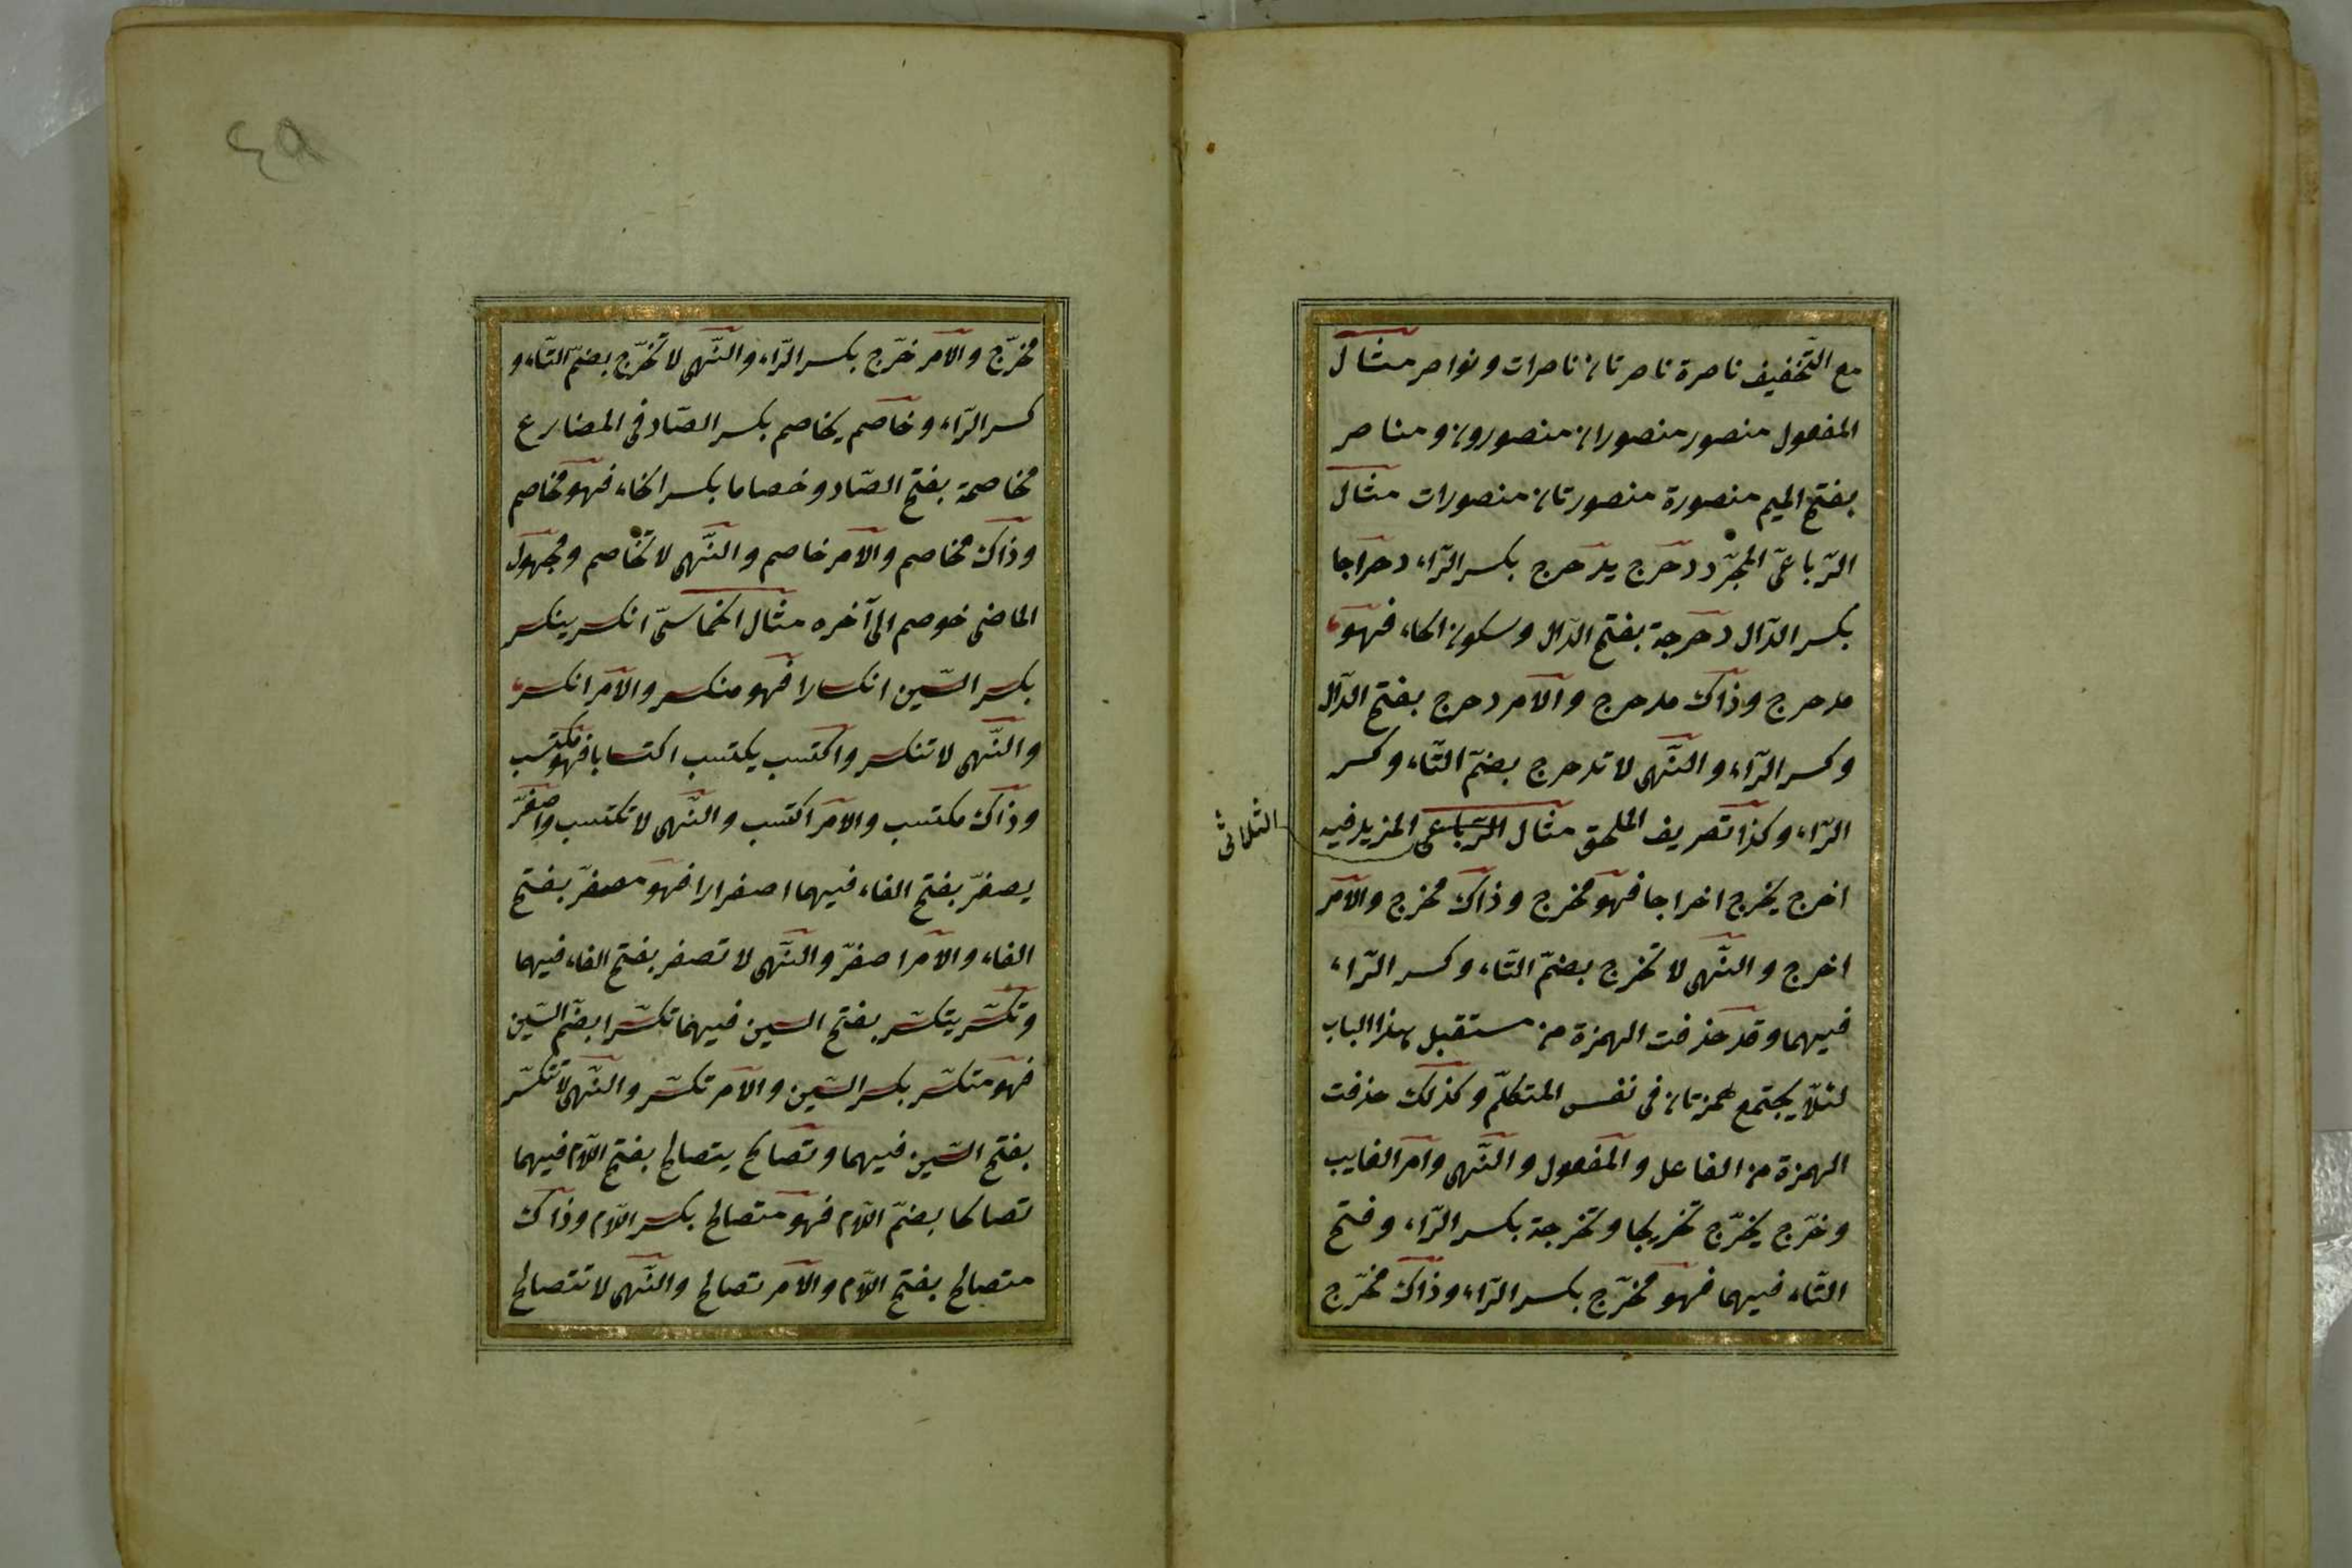 مع التّخفيف ناصرة ناصرتان ناصرات ونواصر مثال
المفعول منصور منصوران منصورون ومناصر
بفتح الميم منصورة منصورتان منصورات مثال
الرّباعىّ المجرّد دحرج يدحرج بكسر الرّاء دحراجا
بكسر الدّال دحرجة بفتح الدّال وسكون الحاء فهو
مدحرج وذاك مدحرج والامر دحرج بفتح الدّال
وكسر الرّاء والنّهى لا تدحرج بضمّ التّاء وكسر
الرّاء وكذا تصريف الملحق مثال الرّباعى المزيد فيه
الثلاثى
اخرج يخرج اخراجا فهو مخرج وذاك مخرج والامر
اخرج والنّهى لا تخرج بضمّ التّاء وكسر الرّاء
فيهما وقد حذفت الهمزة من مستقبل هذا الباب
لئلّا يجتمع همزتان فى نفس المتكلّم وكذلك حذفت
الهمزة من الفاعل والمفعول والنّهى وامر الغايب
وخرّج يخرّج تخريجا وتخرجة بكسر الرّاء وفتح
التّاء فيهما فهو مخرّج بكسر الرّاء وذاك مخرّج
٤٩
مخرّج والامر خرّج بكسر الرّاء والنّهى لا تخرّج بضمّ التّاء و
كسر الرّاء وخاصم يخاصم بكسر الصّاد فى المضارع
مخاصمة بفتح الصّاد وخصاما بكسر الخاء فهو مخاصم
وذاك مخاصم والامر خاصم والنّهى لا تخاصم ومجهول
الماضى خوصم الى آخره مثال الخماسىّ انكسر ينكسر
بكسر السّين انكسارا فهو منكسر والامر انكسر
والنّهى لا تنكسر واكتسب يكتسب اكتسابا فهو مكتسب
وذاك مكتسب والامر اكتسب والنّهى لا تكتسب واصفرّ
يصفرّ بفتح الفاء فيهما اصفرارا فهو مصفرّ بفتح
الفاء والامر اصفرّ والنّهى لا تصفر بفتح الفاء فيهما
وتكسّر يتكسّر بفتح السين فيهما تكسّرا بضمّ السّين
فهو متكسّر بكسر السّين والامر تكسّر والنّهى لا تتكسّر
بفتح السّين فيهما وتصالح يتصالح بفتح اللّام فيهما
تصالحا بضمّ اللّام فهو متصالح بكسر اللّام وذاك
متصالح بفتح اللّام والامر تصالح والنّهى لا تتصالح